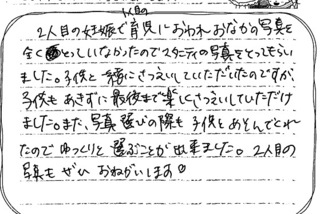 1人目の
2人目の妊娠で育児におわれおなかの写真を
全くとっていなかったのでマタニティの写真をとってもらい
ました。子供と一緒にさつえいしていただいたのですが、
子供もあきずに最後まで楽しくさつえいしていただけ
ました。また、写真選びの際も子供とあそんでくれ
たのでゆっくりと選ぶことが出来ました。2人目の
写真もぜひおねがいします